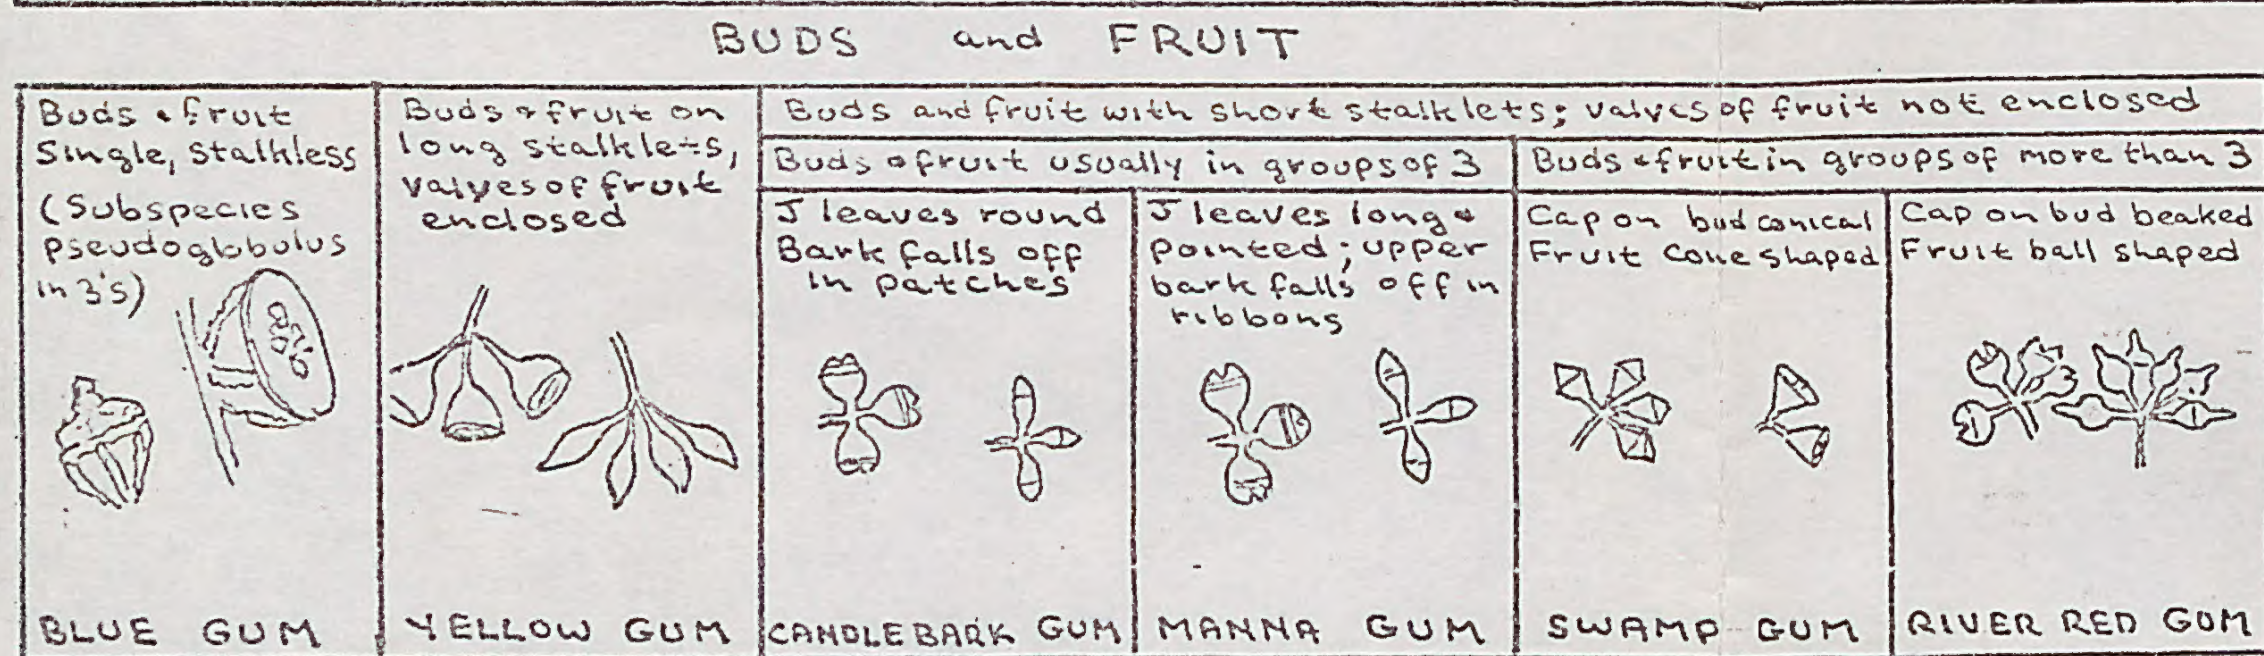 BUDS and FRUIT
Buds & fruit
Single, stalkless
(Subspecies
pseudoglobulus
in 3's)
BLUE GUM
Buds & fruit on
long stalklets,
valves of fruit
enclosed
YELLOW GUM
Buds and fruit with short stalklets; valves of fruit not enclosed
Buds & fruit usually in groups of 3
J leaves round
Bark falls off
in patches
CANDLEBARK GUM
J leaves long &
pointed; upper
bark falls off in
ribbons
MANNA GUM
Buds & fruit in groups of more than 3
Cap on bud conical
Fruit cone shaped
SWAMP GUM
Cap on bud beaked
Fruit ball shaped
RIVER RED GUM